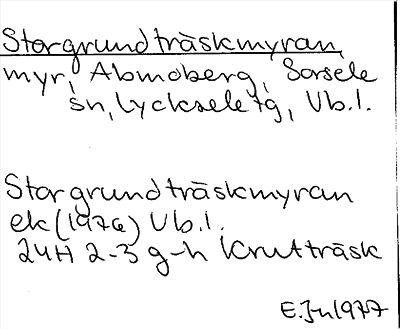 Storgrundträskmyran
myr, Abmoberg, Sorsele
sn, Lycksele tg, Vb.l.
Storgrundträskmyran
ek (1976) Vb.l.
24H 2-3 g-h Krutträsk
E.Jn 1977